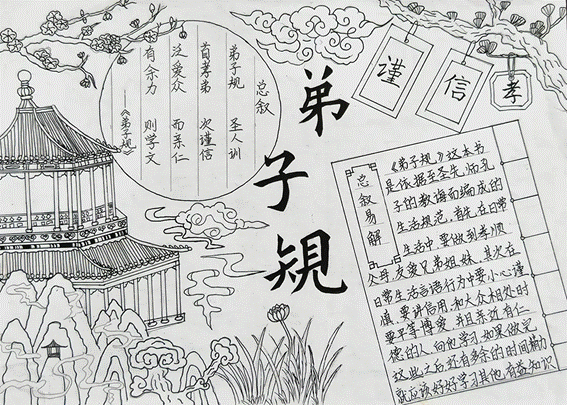 总叙
弟子规 圣人训
首孝弟 次谨信
泛爱众 而亲仁
有余力 则学文
——《弟子规》
弟子規
谨
信
孝
总叙易解
《弟子规》这本书
是依据至圣先师孔
子的教诲而编成的
生活规范。首先在日常
生活中,要做到孝顺
父母,友爱兄弟姐妹。其次在
日常生活言语行为中要小心谨
慎,要讲信用,和大众相处时
要平等博爱,并且亲近有仁
德的人,向他学习,如果做完
这些之后,还有多余的时间精力
就应该好好学习其他有益知识